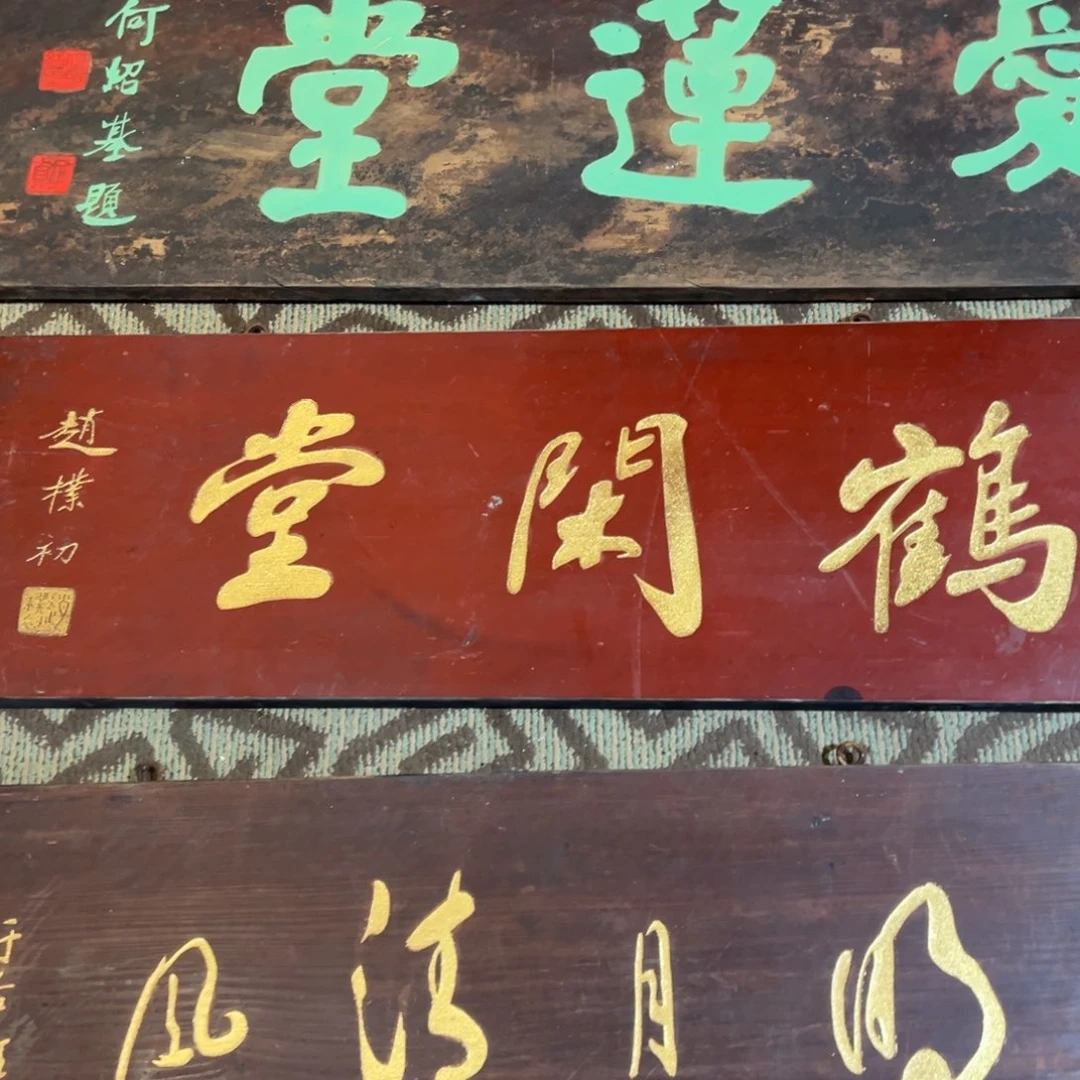 愛蓮堂
何紹基題
鶴閑堂
趙樸初
明月清風